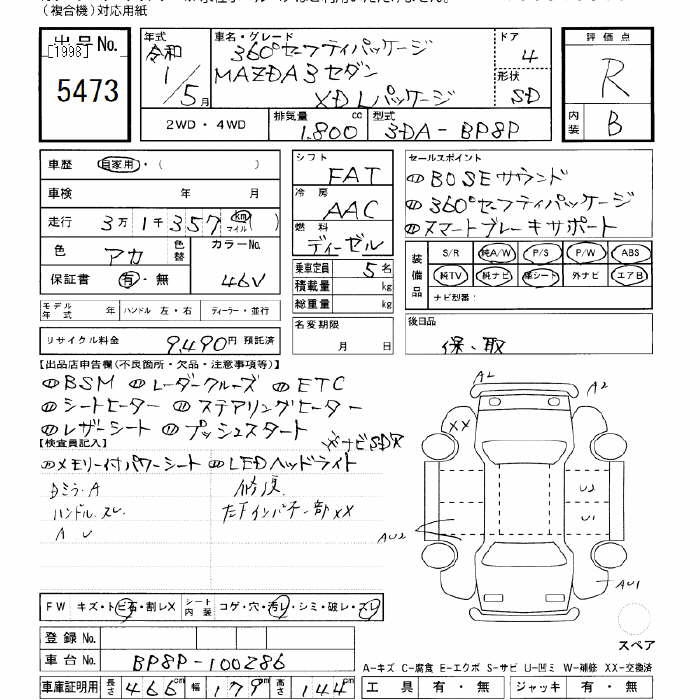 （複合機）対応用紙
出品No.
[1998]
5473
年式
令和
1/5月
車名・グレード
360°セーフティパッケージ
MAZDA3セダン
XD Lパッケージ
ドア
4
形状
SD
2WD・4WD
排気量
1.800 cc
型式
3DA-BP8P
評価点
R
内装
B
車歴 自家用・( )
車検 年 月
走行 3万1千357 km マイル
色 アカ 色替 カラーNo. 46V
保証書 有・無
モデル年式 年 ハンドル 左・右 ディーラー・並行
リサイクル料金 9,490円 預託済
シフト
FAT
冷房
AAC
燃料
ディーゼル
乗車定員 5名
積載量 kg
総重量 kg
名変期限
月 日
セールスポイント
① BOSEサウンド
① 360°セーフティパッケージ
① スマートブレーキサポート
装備品
S/R 純A/W P/S P/W ABS
純TV 純ナビ 革シート 外ナビ エアB
ナビ型番：
後日品
保、取
【出品店申告欄(不良箇所・欠品・注意事項等)】
① BSM ① レーダークルーズ ① ETC
① シートヒーター ① ステアリングヒーター
① レザーシート ① プッシュスタート
※ナビSDR
【検査員記入】
① メモリー付パワーシート ① LEDヘッドライト
Dミラ-A
ハンドル スレ
A U
修復
右Fインパネ一部XX
FW キズ・トビ石・割レX シート内装 コゲ・穴・汚レ・シミ・破レ・スレ
登録No.
車台No. BP8P-100286
車庫証明用 長さ 466cm 幅 179cm 高さ 144cm
A2
A2
XX
U2
U1
AU2
AU1
スペア
A-キズ C-腐食 E-エクボ S-サビ U-凹ミ W-補修 XX-交換済
工具 有・無 ジャッキ 有・無